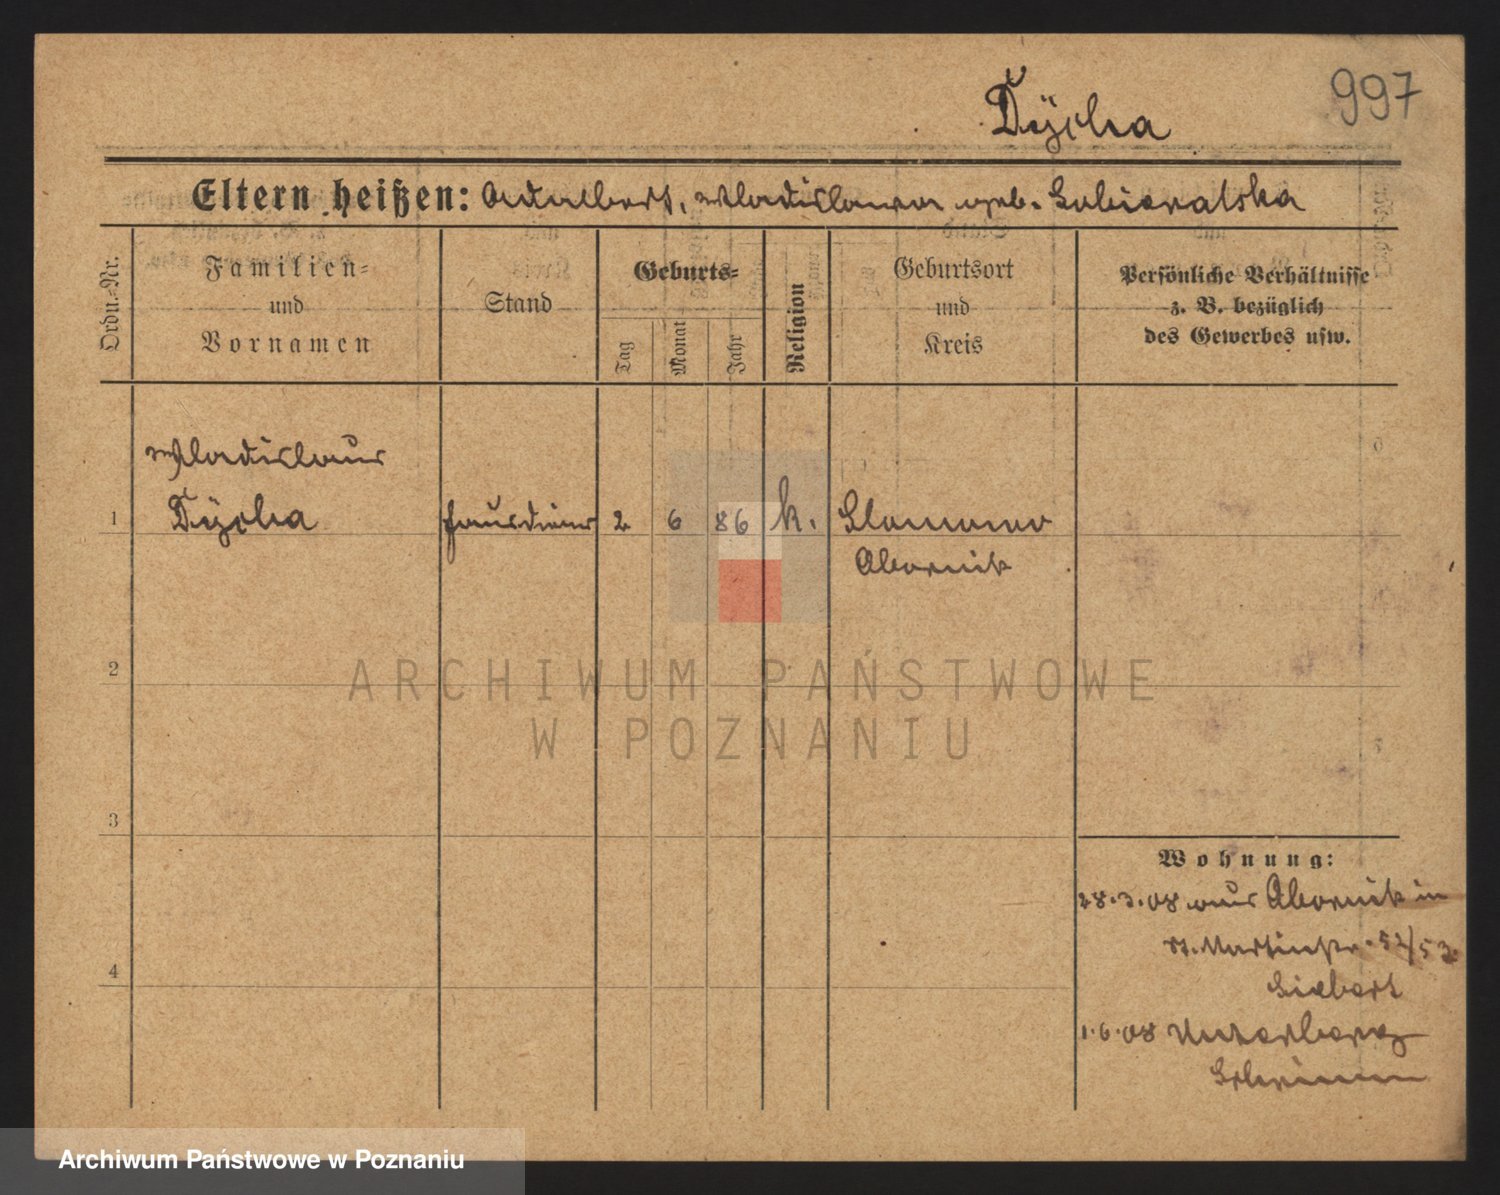 997
Dÿcha
Eltern heißen: Adalbert, Wladislawa geb.
Ordn.-Nr.
Familien-
und
Vornamen
Stand
Geburts-
Tag
Monat
Jahr
Religion
Geburtsort
und
Kreis
Persönliche Verhältnisse
z. B. bezüglich
des Gewerbes usw.
Wladislaus
1 Dÿcha Hausdiener 2 6 86 k. Slomowo
Obornik
2
3
4
Wohnung:
28.3.08 aus Obornik in
St. Martinstr. 52/53
Siebert
1.6.08
Schrimm
ARCHIWUM PAŃSTWOWE
W POZNANIU
Archiwum Państwowe w Poznaniu